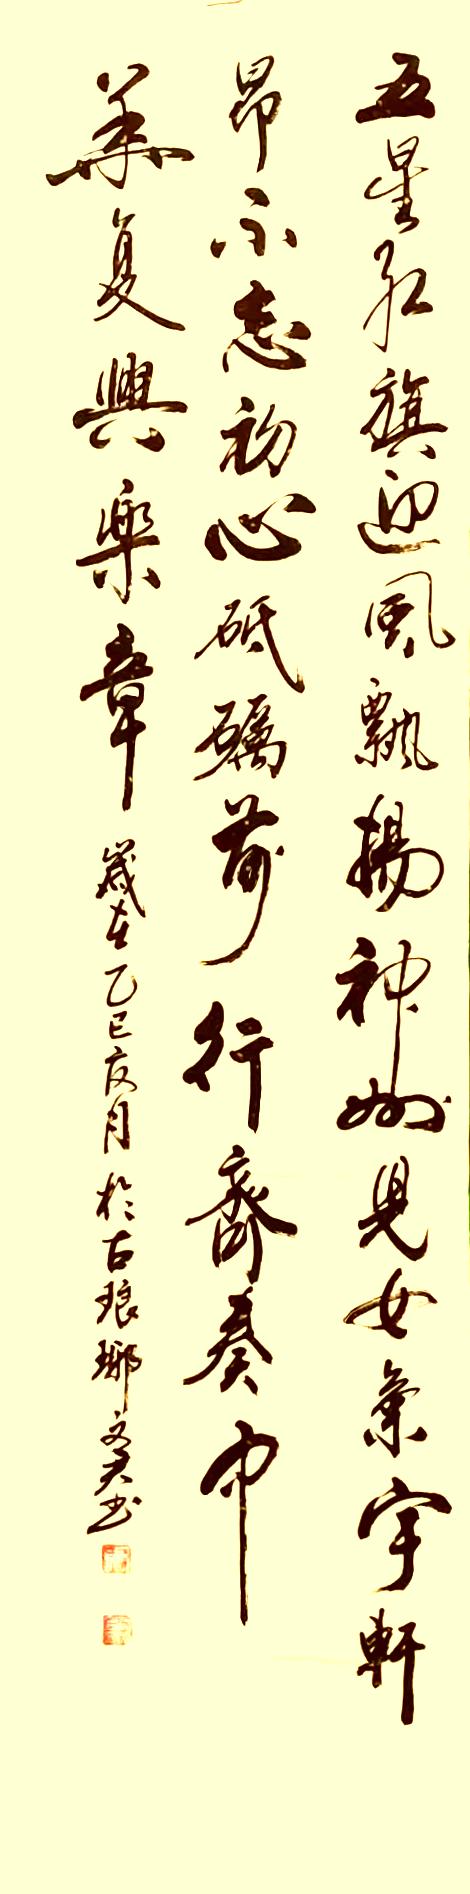 五星红旗迎風飄揚神州児女氣宇軒
昂不忘初心砥礪前行齊奏中
華复興樂章
歲在乙巳夜月於古琅琊文君书